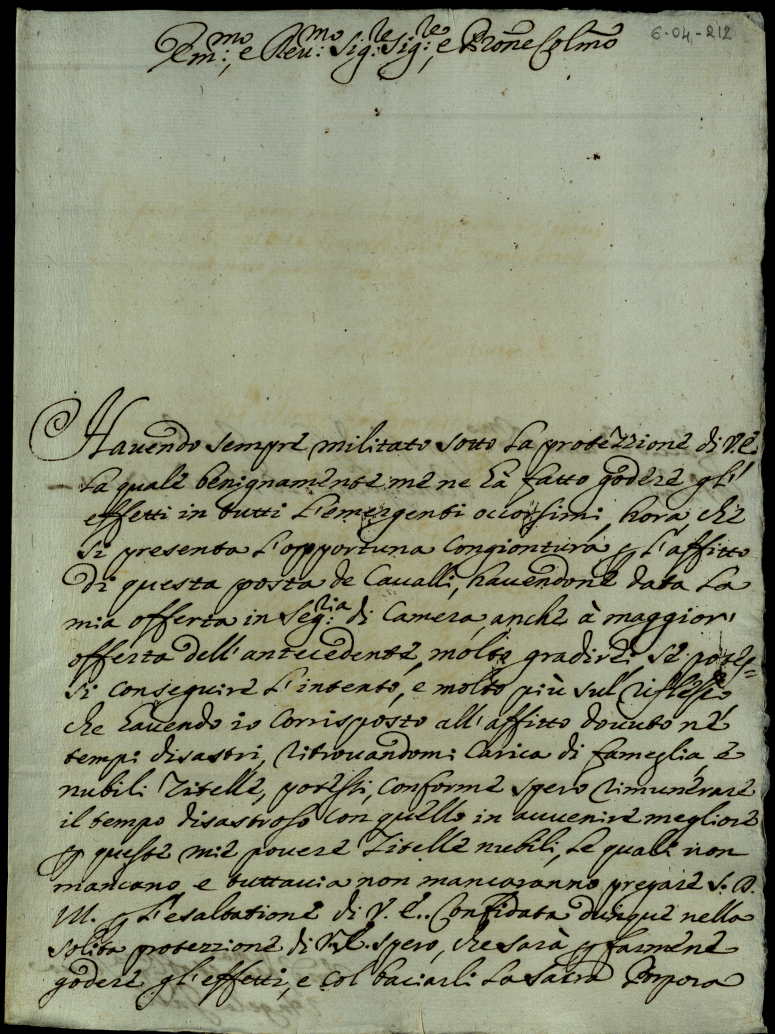 Em:mo, e Reu:mo Sig:re Sig:re, e Prōne Colmō
6-04-212
Hauendo sempre militato sotto la protezzione di V.E.
la quale benignamente me ne hà fatto godere gl'
effetti in tutti l'emergenti occorsimi, hora che
si presenta l'opportuna congiontura p l'affitto
di questa posta de Caualli, hauendone data la
mia offerta in Seg:ria di Camera, anche à maggior'
offerta dell'antecedente, molto gradirei, se potes=
si conseguire l'intento, e molto più sul riflesso
che hauendo io corrisposto all'affitto douuto né
tempi disastri, ritrouandomi carica di fameglia, e
nubili Zitelle, potessi, conforme spero rimunerare
il tempo disastroso con quello in auuenire megliore
p queste mie pouere Zitelle nubili, le quali non
mancano, e tuttauia non mancaranno pregare S. D.
M. p l'esaltatione di V. E.. Confidata dunque nella
solita protezzione di V.E. spero, che sarà p farmene
godere gl'effetti, e col baciarli la Sacra Porpora